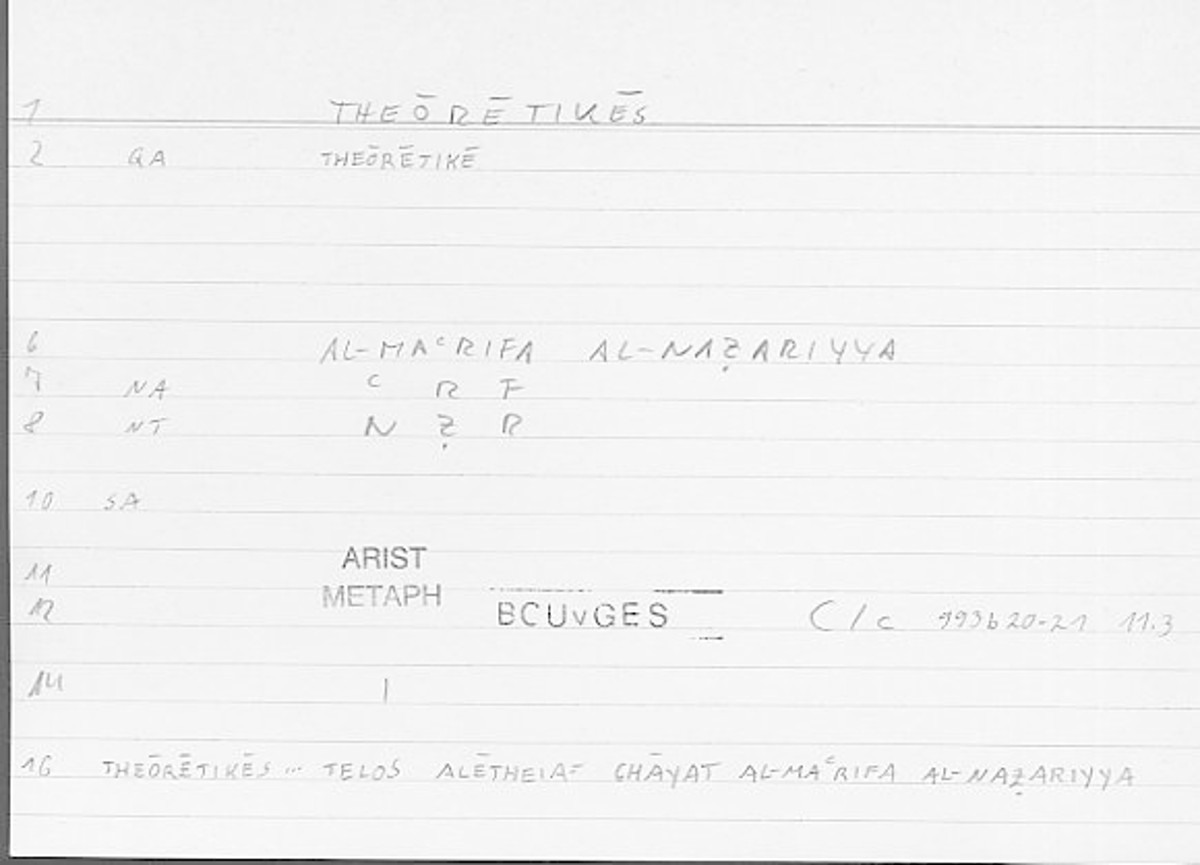 1 THEŌRĒTIKĒS
2 QA THEŌRĒTIKĒ
6 AL-MAᶜRIFA AL-NAẒARIYYA
7 NA ᶜ R F
8 NT N Ẓ R
10 SA
11 ARIST
12 METAPH BCUvGES C/c 993b20-21 11.3
14 1
16 THEŌRĒTIKĒS ... TELOS ALĒTHEIA= GHĀYAT AL-MAᶜRIFA AL-NAẒARIYYA